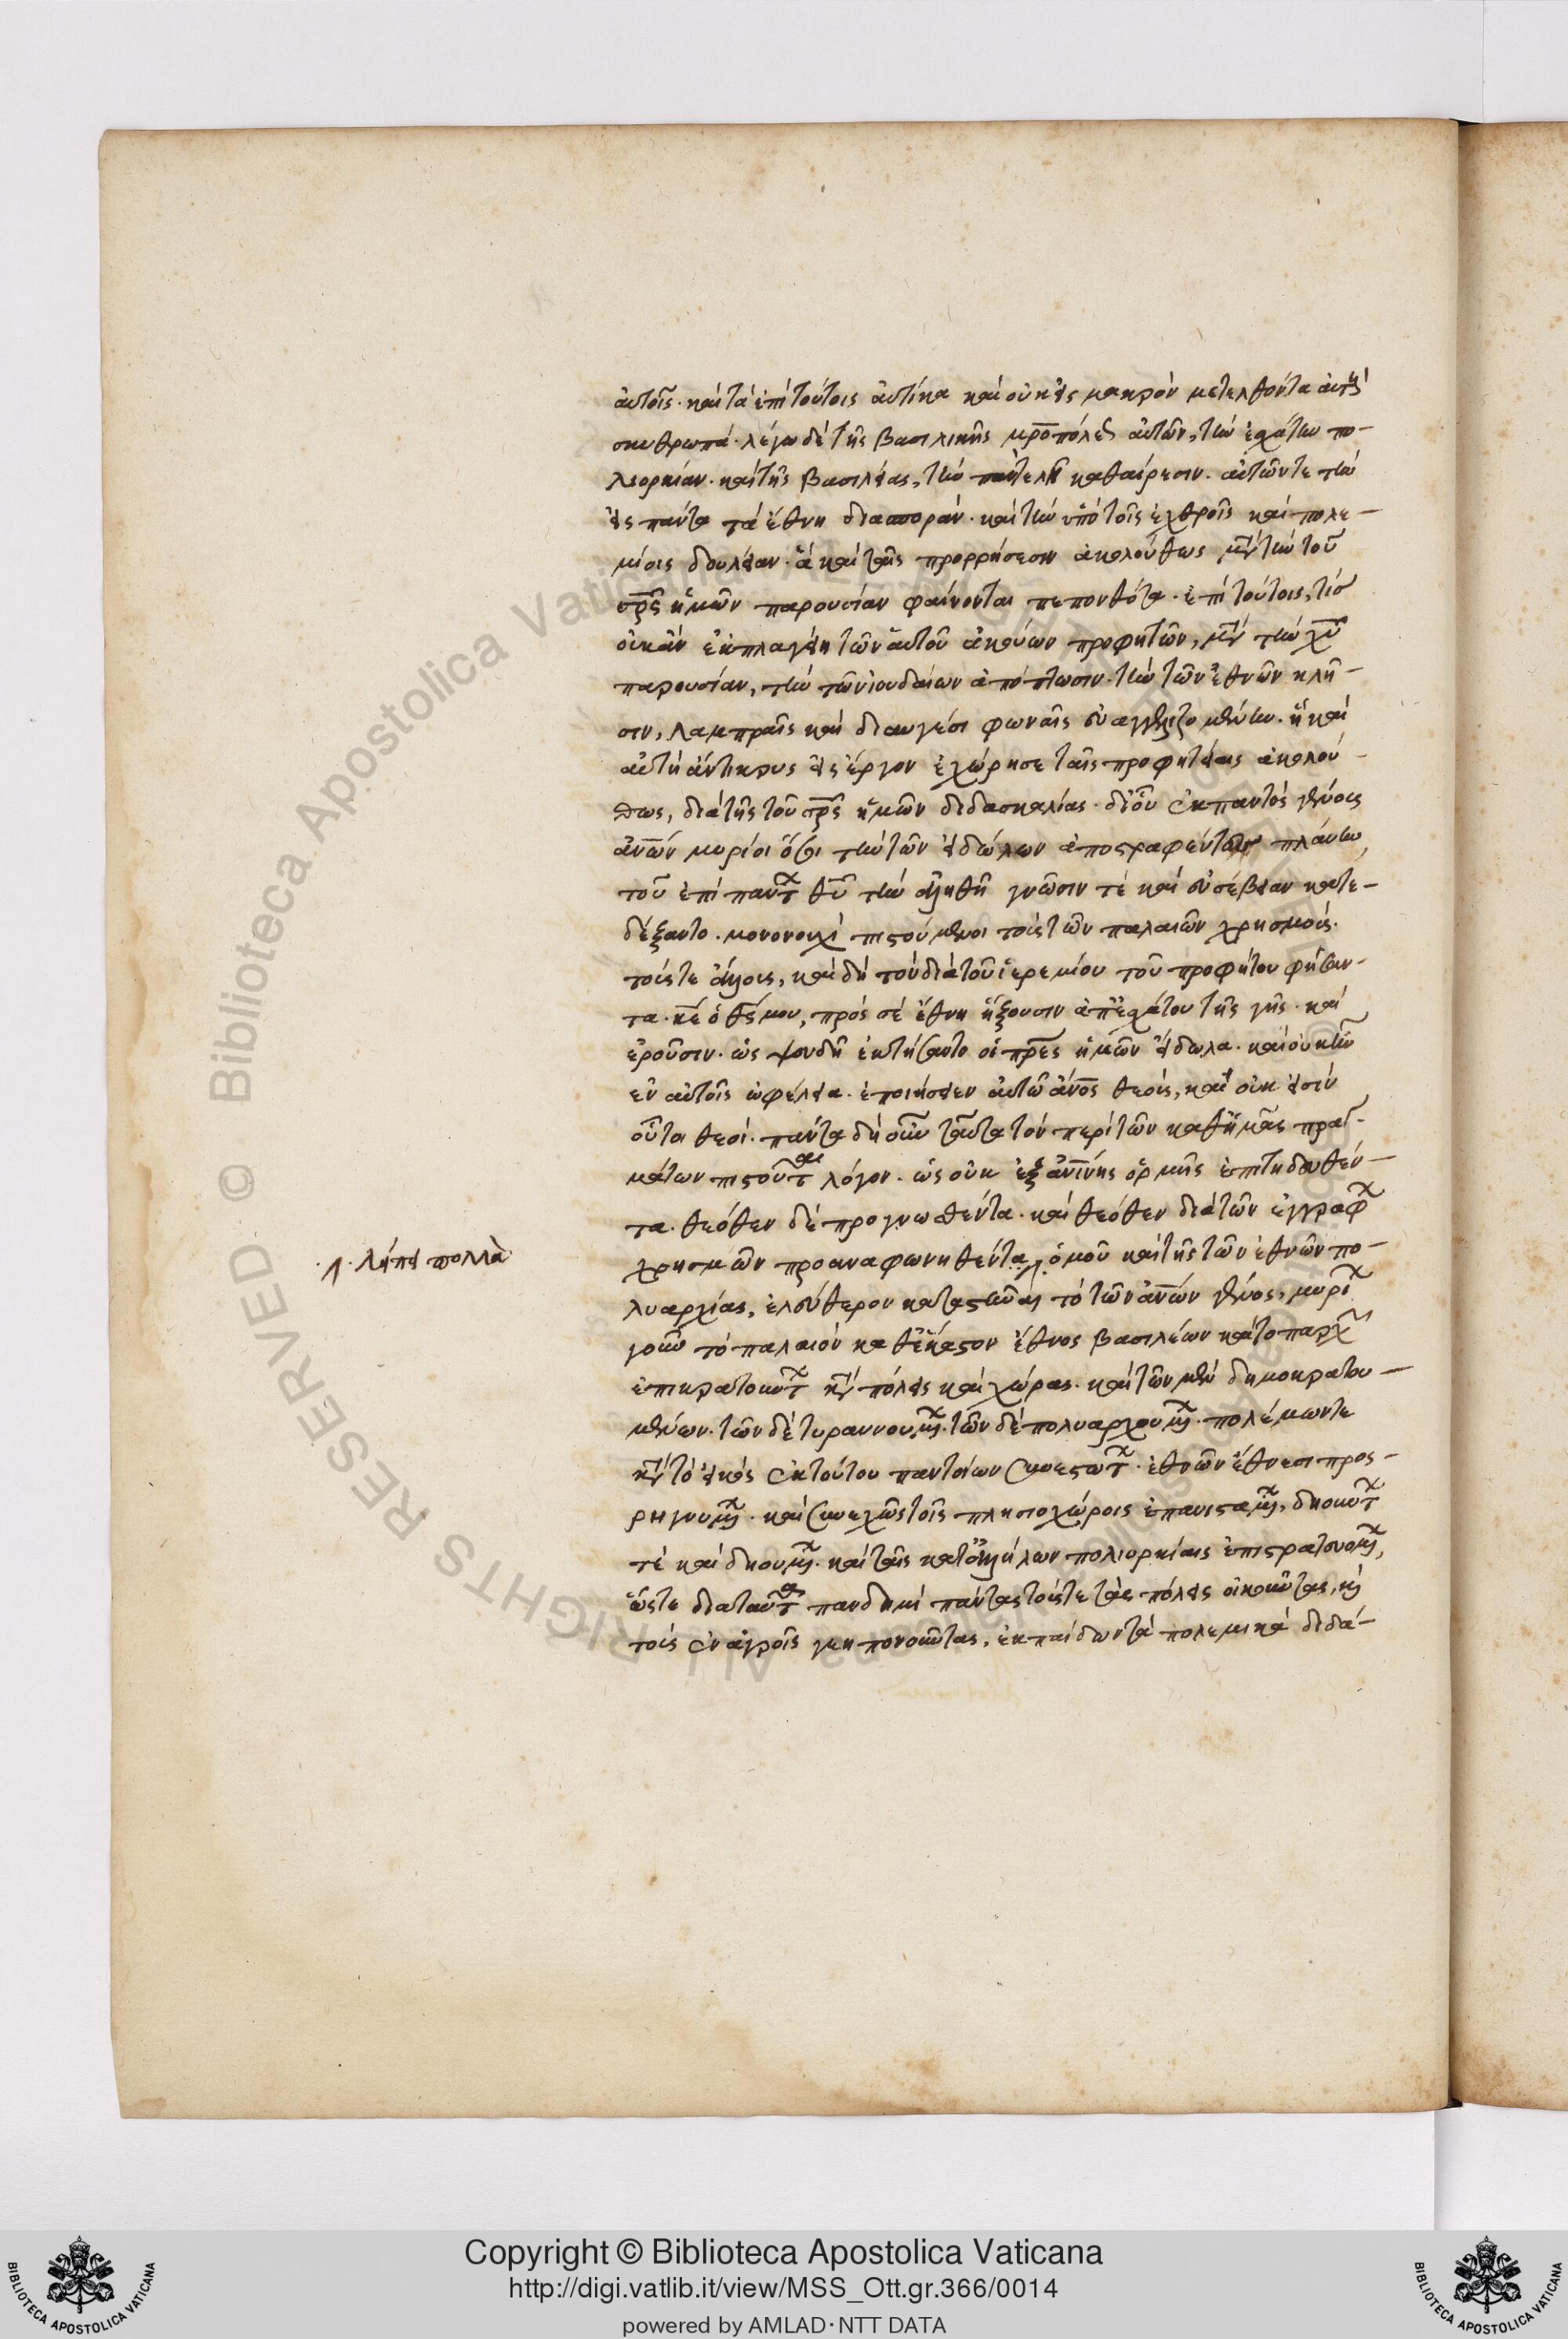 αὐτοῖς· καὶ τὰ ἐπὶ τούτοις αὐτίκα καὶ οὐκ εἰς μακρὸν μετελθόντα αὐτοὺς
σκυθρωπά· λέγω δὲ τῆς βασιλικῆς μρ̅οπόλεως αὐτῶν, τὴν ἐσχάτην πο-
λιορκίαν· καὶ τῆς βασιλείας, τὴν παντελῆ καθαίρεσιν· αὐτῶν τε τὴν
εἰς πάντα τὰ ἔθνη διασποράν· καὶ τὴν ὑπὸ τοῖς ἐχθροῖς καὶ πολε-
μίοις δουλείαν· ἃ καὶ ταῖς προρρήσεσιν ἀκολούθως μετὰ τὴν τοῦ
σρ̅ς ἡμῶν παρουσίαν φαίνονται πεπονθότα· ἐπὶ τούτοις, τίς
οὐκ ἂν ἐκπλαγείη τῶν αὐτοῦ ἀκούων προφητῶν, μετὰ τὴν χυ̅
παρουσίαν, τὴν τῶν ἰουδαίων ἀπόπτωσιν· τὴν τῶν ἐθνῶν κλῆ-
σιν, λαμπραῖς καὶ διαυγέσι φωναῖς εὐαγγελιζομένων· ἣ καὶ
αὐτὴ ἄντικρυς εἰς ἔργον ἐχώρησε ταῖς προφητείαις ἀκολού-
θως, διὰ τῆς τοῦ σρ̅ς ἡμῶν διδασκαλίας· δι' οὗ ἐκ παντὸς γένους
ἀν̅ων μυρίοι ὅσοι τὴν τῶν εἰδώλων ἀποστραφέντες πλάνην,
τοῦ ἐπὶ πάντων θυ̅ τὴν ἀληθῆ γνῶσιν τὲ καὶ εὐσέβειαν κατε-
δέξαντο· μονονουχὶ πιστούμενοι τοὺς τῶν παλαιῶν χρησμούς·
τούς τε ἄλλους, καὶ δὴ τὸν διὰ τοῦ ἱερεμίου τοῦ προφήτου φήσαν-
τα· κε̅ ὁ θς̅ μου, πρὸς σὲ ἔθνη ἥξουσιν ἀπ' ἐσχάτου τῆς γῆς· καὶ
ἐροῦσιν· ὡς ψευδῆ ἐκτήσαντο οἱ πρ̅ες ἡμῶν εἴδωλα· καὶ οὐκ ἦν
ἐν αὐτοῖς ὠφέλεια· εἰ ποιήσει ἑαυτῷ ἄν̅ος θεούς, καὶ οὐκ εἰσὶν
οὗτοι θεοί· πάντα δὴ οὖν ταῦτα τὸν περὶ τῶν καθ' ἡμᾶς πραγ-
μάτων πιστοῦται λόγον· ὡς οὐκ ἐξ ἀν̅ίνης ὁρμῆς ἐπιτηδευθέν-
τα· θεόθεν δὲ προγνωσθέντα· καὶ θεόθεν διὰ τῶν ἐγγράφων
χρησμῶν προαναφωνηθέντα ὁμοῦ καὶ τῆς τῶν ἐθνῶν πο-
.1. λείπει πολλὰ
λυαρχίας, ἐλεύθερον καταστῆναι τὸ τῶν ἀν̅ων γένος, μυρίων
γοῦν τὸ παλαιὸν καθ' ἕκαστον ἔθνος βασιλέων καὶ τοπαρχῶν
ἐπικρατούντων κατὰ πόλεις καὶ χώρας· καὶ τῶν μὲν δημοκρατου-
μένων· τῶν δὲ τυραννουμένων· τῶν δὲ πολυαρχουμένων· πολέμων τε
κατὰ τὸ εἰκὸς ἐκ τούτου παντοίων συνεστώτων· ἐθνῶν ἔθνεσι προσ-
ρηγνυμένων· καὶ συνεχῶς τοῖς πλησιοχώροις ἐπανισταμένων, δηούντων
τὲ καὶ δηουμένων· καὶ ταῖς κατ' ἀλλήλων πολιορκίαις ἐπιστρατευομένων,
ὥστε διὰ ταῦτα πανδημὶ πάντας τούς τε τὰς πόλεις οἰκοῦντας, καὶ
τοὺς ἐν ἀγροῖς γεηπονοῦντας, ἐκ παίδων τὰ πολεμικὰ διδά-
Copyright © Biblioteca Apostolica Vaticana
http://digi.vatlib.it/view/MSS_Ott.gr.366/0014
powered by AMLAD·NTT DATA
BIBLIOTECA APOSTOLICA VATICANA
BIBLIOTECA APOSTOLICA VATICANA